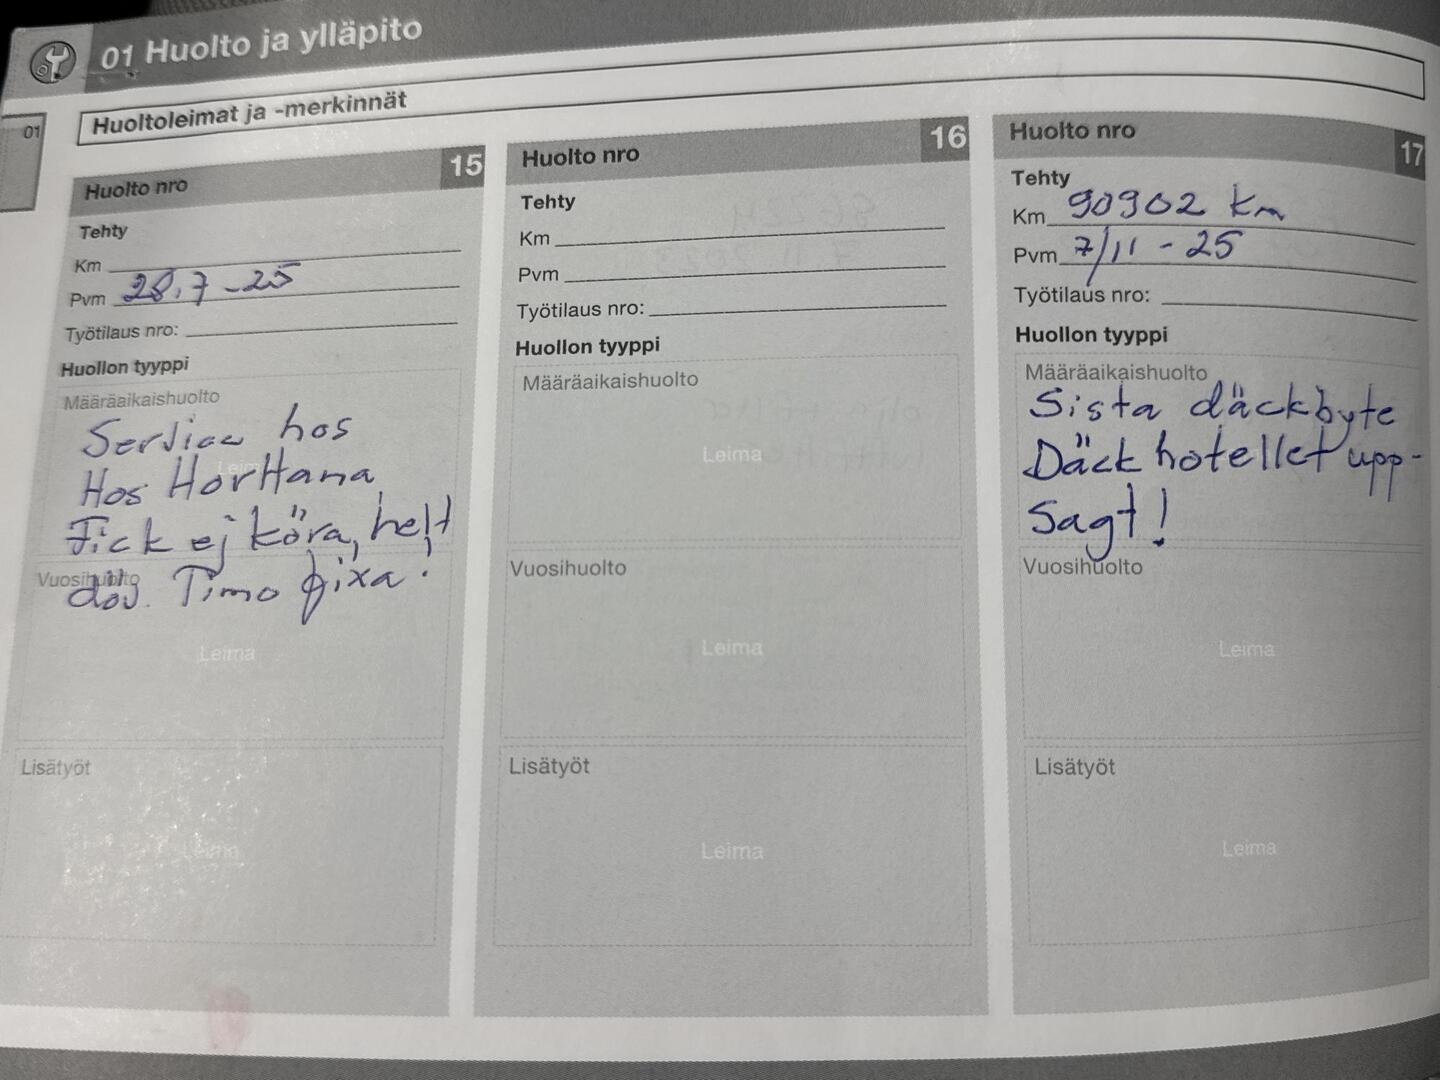 01 Huolto ja ylläpito
01
Huoltoleimat ja -merkinnät
Huolto nro 15
Tehty
Km
Pvm 28.7-25
Työtilaus nro:
Huollon tyyppi
Määräaikaishuolto
Service hos
Leima
Hos HorHana
Fick ej köra, helt
Vuosihuolto
döv. Timo fixa!
Leima
Lisätyöt
Leima
Huolto nro 16
Tehty
Km
Pvm
Työtilaus nro:
Huollon tyyppi
Määräaikaishuolto
Leima
Vuosihuolto
Leima
Lisätyöt
Leima
Huolto nro 17
Tehty
Km 90902 km
Pvm 7/11-25
Työtilaus nro:
Huollon tyyppi
Määräaikaishuolto
Sista däckbyte
Däckhotellet upp-
sagt!
Vuosihuolto
Leima
Lisätyöt
Leima